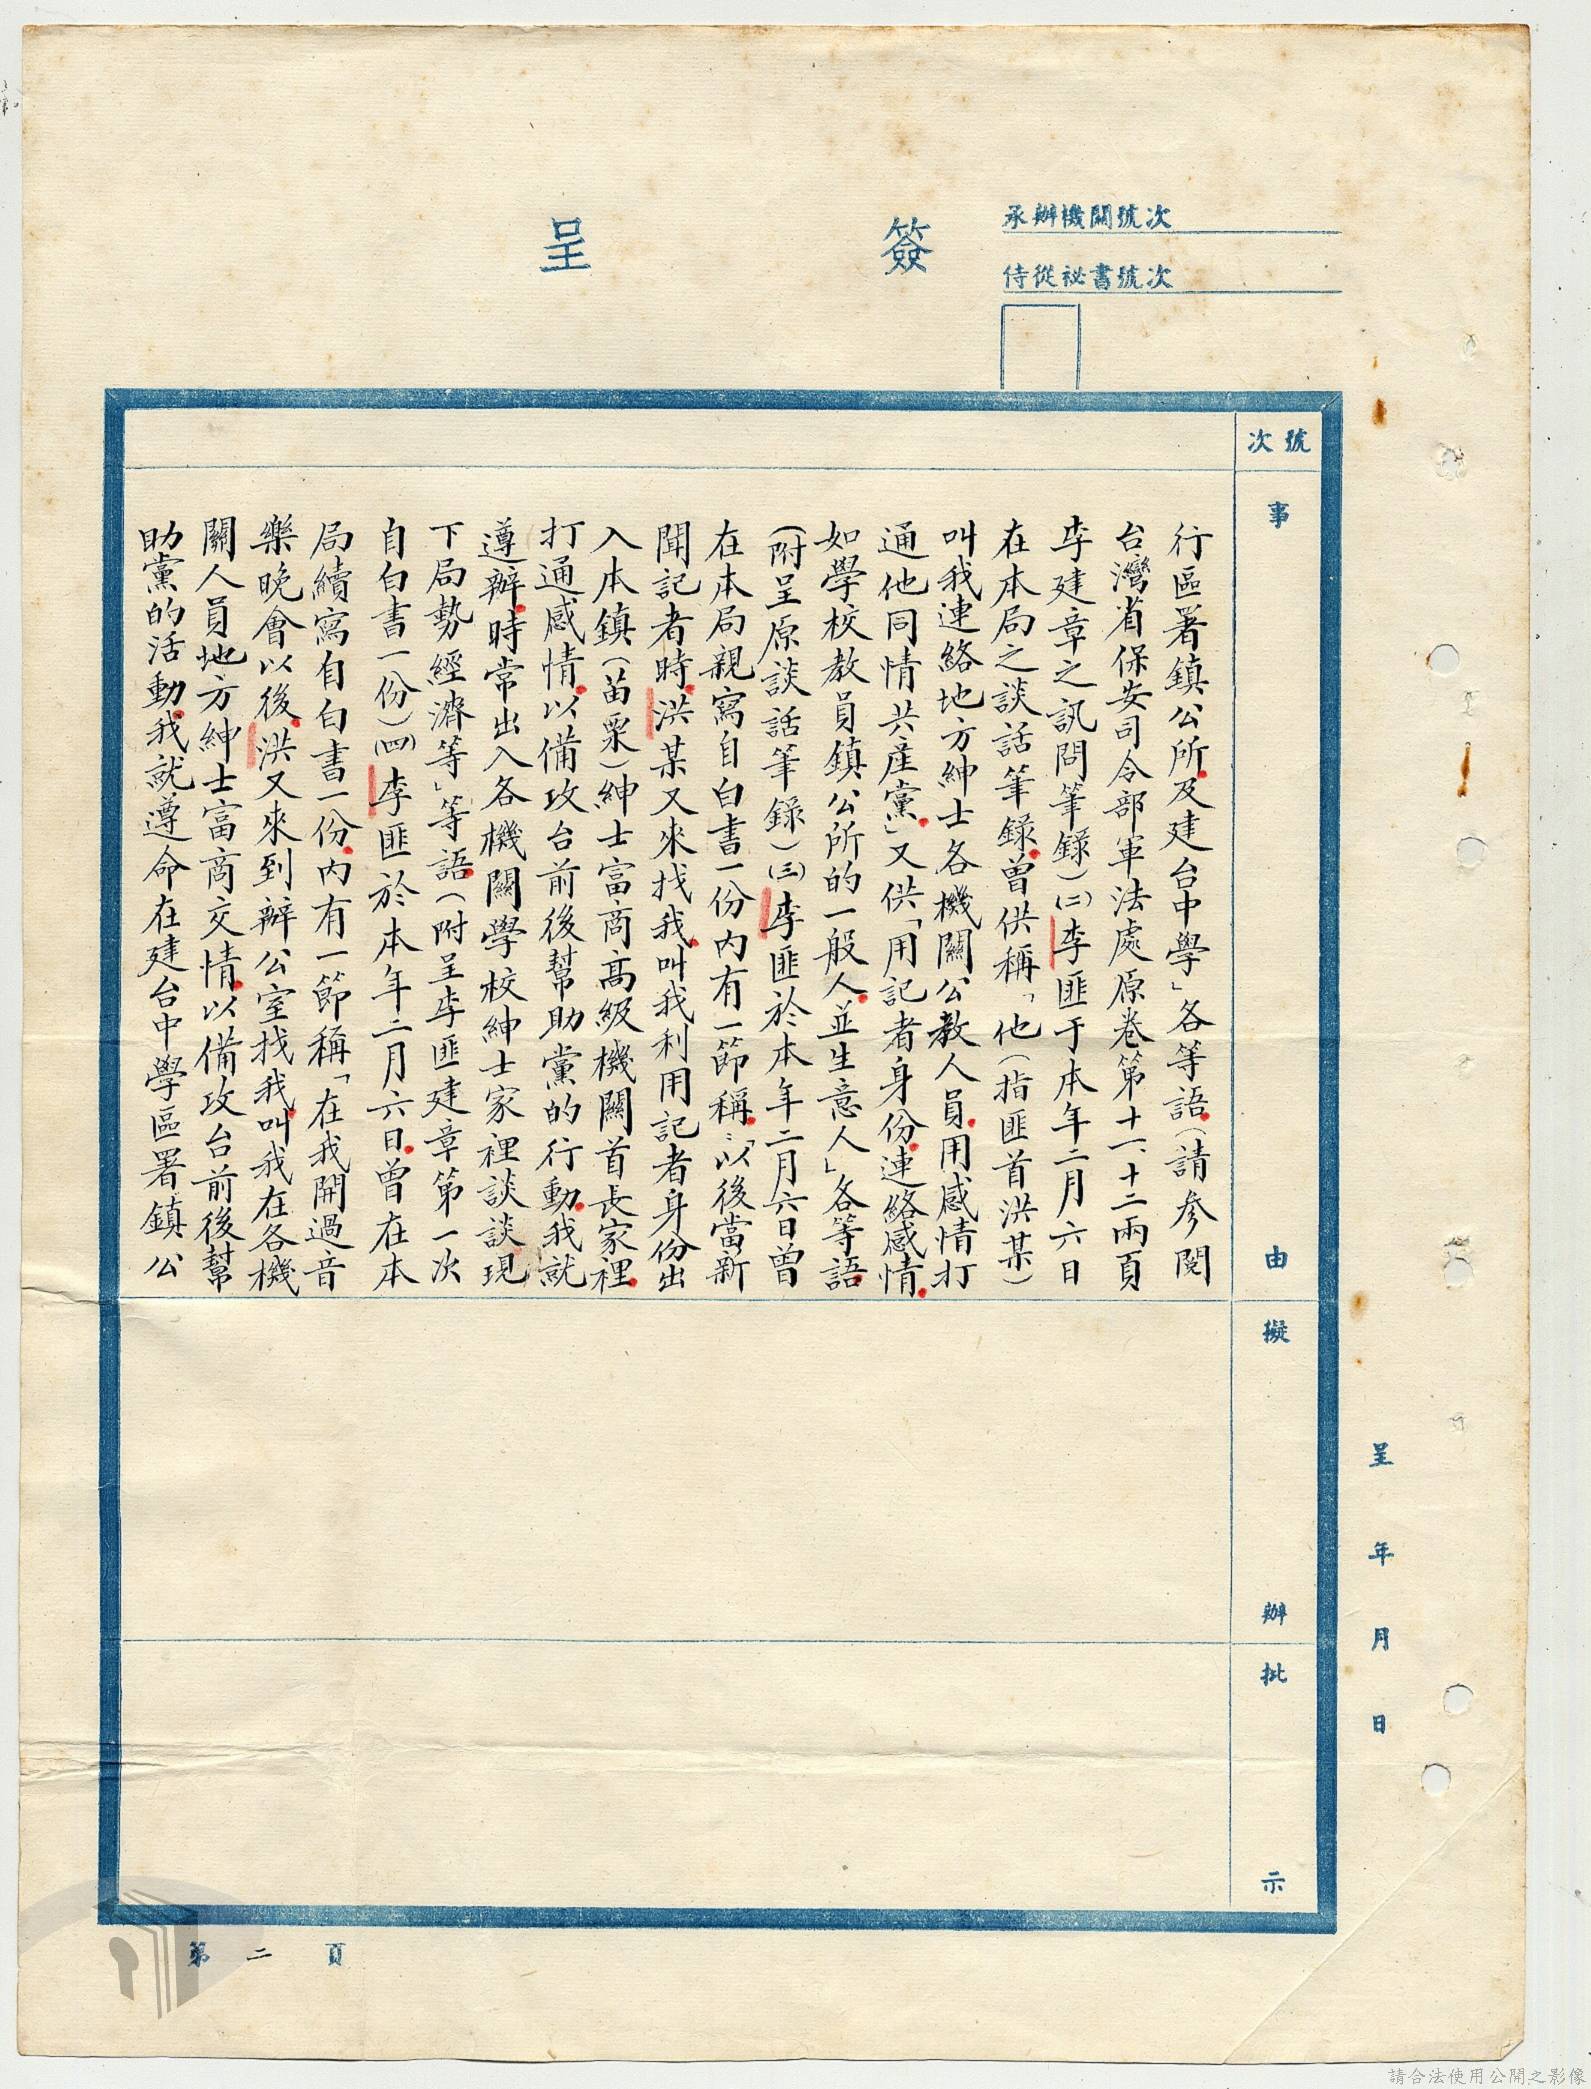 簽呈
承辦機關號次
侍從祕書號次
號次
事由
擬辦
批示
呈 年 月 日
行區署鎮公所及建台中學」各等語(請參閱
台灣省保安司令部軍法處原卷第十一、十二兩頁
李建章之訊問筆錄)㈡李匪于本年二月六日
在本局之談話筆錄曾供稱「他(指匪首洪某)
叫我連絡地方紳士各機關公教人員用感情打
通他同情共產黨」又供「用記者身份連絡感情
如學校教員鎮公所的一般人並生意人」各等語
(附呈原談話筆錄)㈢李匪於本年二月六日曾
在本局親寫自白書一份內有一節稱:「以後當新
聞記者時洪某又來找我叫我利用記者身份出
入本鎮(苗栗)紳士富商高級機關首長家裡
打通感情以備攻台前後幫助黨的行動我就
遵辦時常出入各機關學校紳士家裡談談現
下局勢經濟等」等語(附呈李匪建章第一次
自白書一份)㈣李匪於本年二月六日曾在本
局續寫自白書一份內有一節稱「在我開過音
樂晚會以後洪又來到辦公室找我叫我在各機
關人員地方紳士富商交情以備攻台前後幫
助黨的活動我就遵命在建台中學區署鎮公
第二頁
請合法使用公開之影像